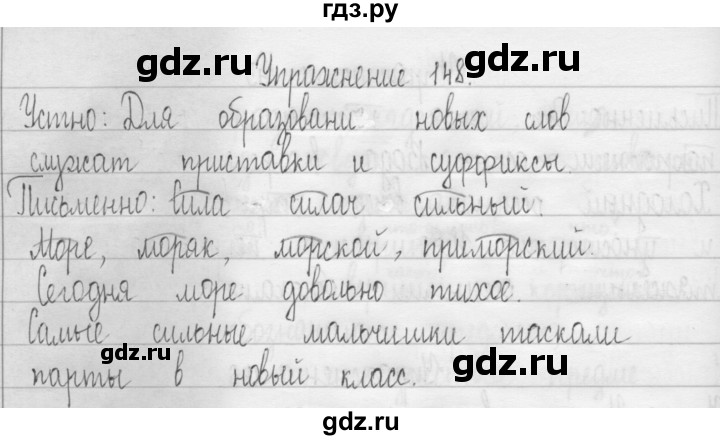 гдз.ру
gdz.ru gdz.ru
Упражнение 148.
Устно: Для образовани новых слов
служат приставки и суффиксы.
gdz.ru gdz.ru
Письменно: Сила силач сильный.
Море, моряк, морской, приморский.
gdz.ru gdz.ru
Сегодня море довольно тихое.
Самые сильные мальчишки таскали
gdz.ru gdz.ru
парты в новый класс.
gdz.ru